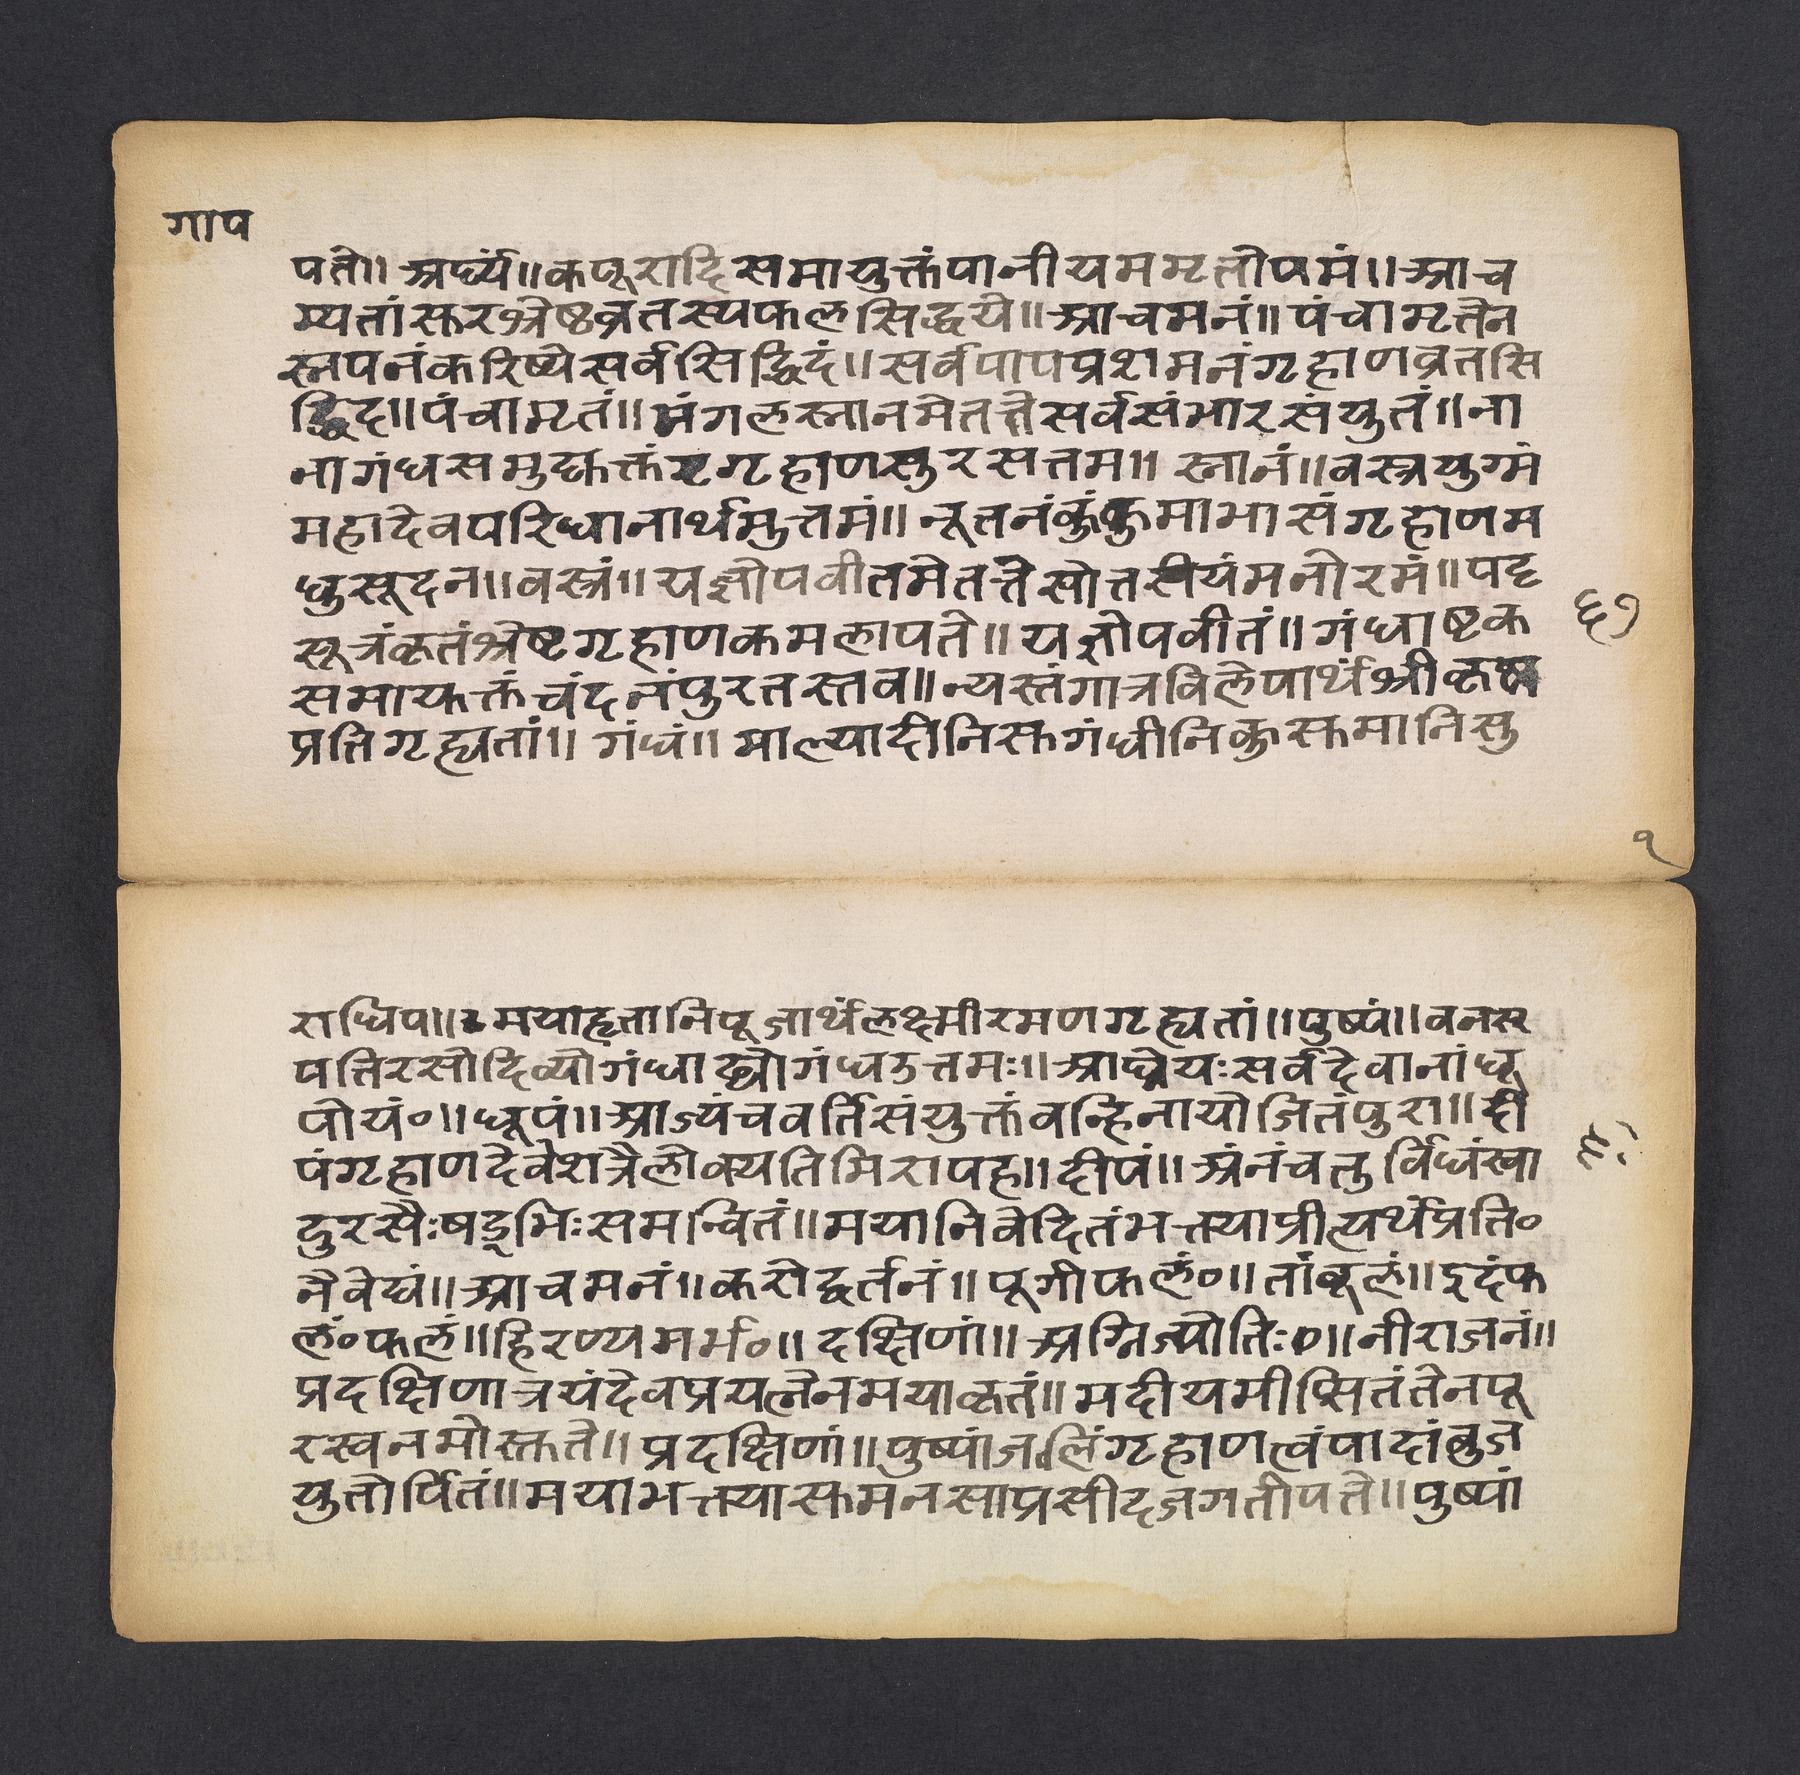 गाप
पते॥ अर्घ्यं॥ कपूरादिसमायुक्तंपानीयममृतोपमं॥ आच
म्यतांसुरश्रेष्ठव्रतस्यफलसिद्धये॥ आचमनं॥ पंचामृतेन
स्नपनंकरिष्येसर्वसिद्धिदं॥ सर्वपापप्रशमनंगृहाणव्रतसि
द्धिद॥ पंचामृतं॥ मंगलस्नानमेतत्तेसर्वसंभारसंयुतं॥ ना
नागंधसमुद्युक्तं गृहाणसुरसत्तम॥ स्नानं॥ वस्त्रयुग्मं
महादेवपरिधानार्थमुत्तमं॥ नूतनंकुंकुमाभासंगृहाणम
धुसूदन॥ वस्त्रं॥ यज्ञोपवीतमेतत्तेसोत्तरीयंमनोरमं॥ पट्ट
सूत्रंकृतंश्रेष्टगृहाणकमलापते॥ यज्ञोपवीतं॥ गंधाष्टक
६७
समायुक्तंचंदनंपुरतस्तव॥ न्यस्तंगात्रविलेपार्थंश्रीकृष्ण
प्रतिगृह्यतां॥ गंधं॥ माल्यादीनिसुगंधीनिकुसुमानिसु
१
राधिप॥ मयाहृतानिपूजार्थंलक्ष्मीरमणगृह्यतां॥ पुष्पं॥ वनस्
पतिरसोदिव्योगंधाढ्योगंधउत्तमः॥ आघ्रेयःसर्वदेवानांधू
पोयं०॥ धूपं॥ आज्यंचवर्तिसंयुक्तंवन्हिनायोजितंपुरा॥ दी
पंगृहाणदेवेशत्रैलोक्यतिमिरापह॥ दीपं॥ अंनंचतुर्विधंस्वा
दुरसैःषड्भिःसमन्वितं॥ मयानिवेदितंभक्त्याप्रीत्यर्थंप्रति०
नैवेद्यं॥ आचमनं॥ करोद्वर्तनं॥ पूगीफलं०॥ तांबूलं॥ इदंफ
लं०फलं॥ हिरण्यगर्भ०॥ दक्षिणां॥ अग्निज्योतिः०॥ नीराजनं॥
प्रदक्षिणात्रयंदेवप्रयत्नेनमयाकृतं॥ मदीयमीप्सितंतेनपू
रस्वनमोस्तुते॥ प्रदक्षिणां॥ पुष्पांजलिंगृहाणत्वंपादांबुज
युतोर्पितं॥ मयाभक्त्यासुमनसाप्रसीदजगतीपते॥ पुष्पां